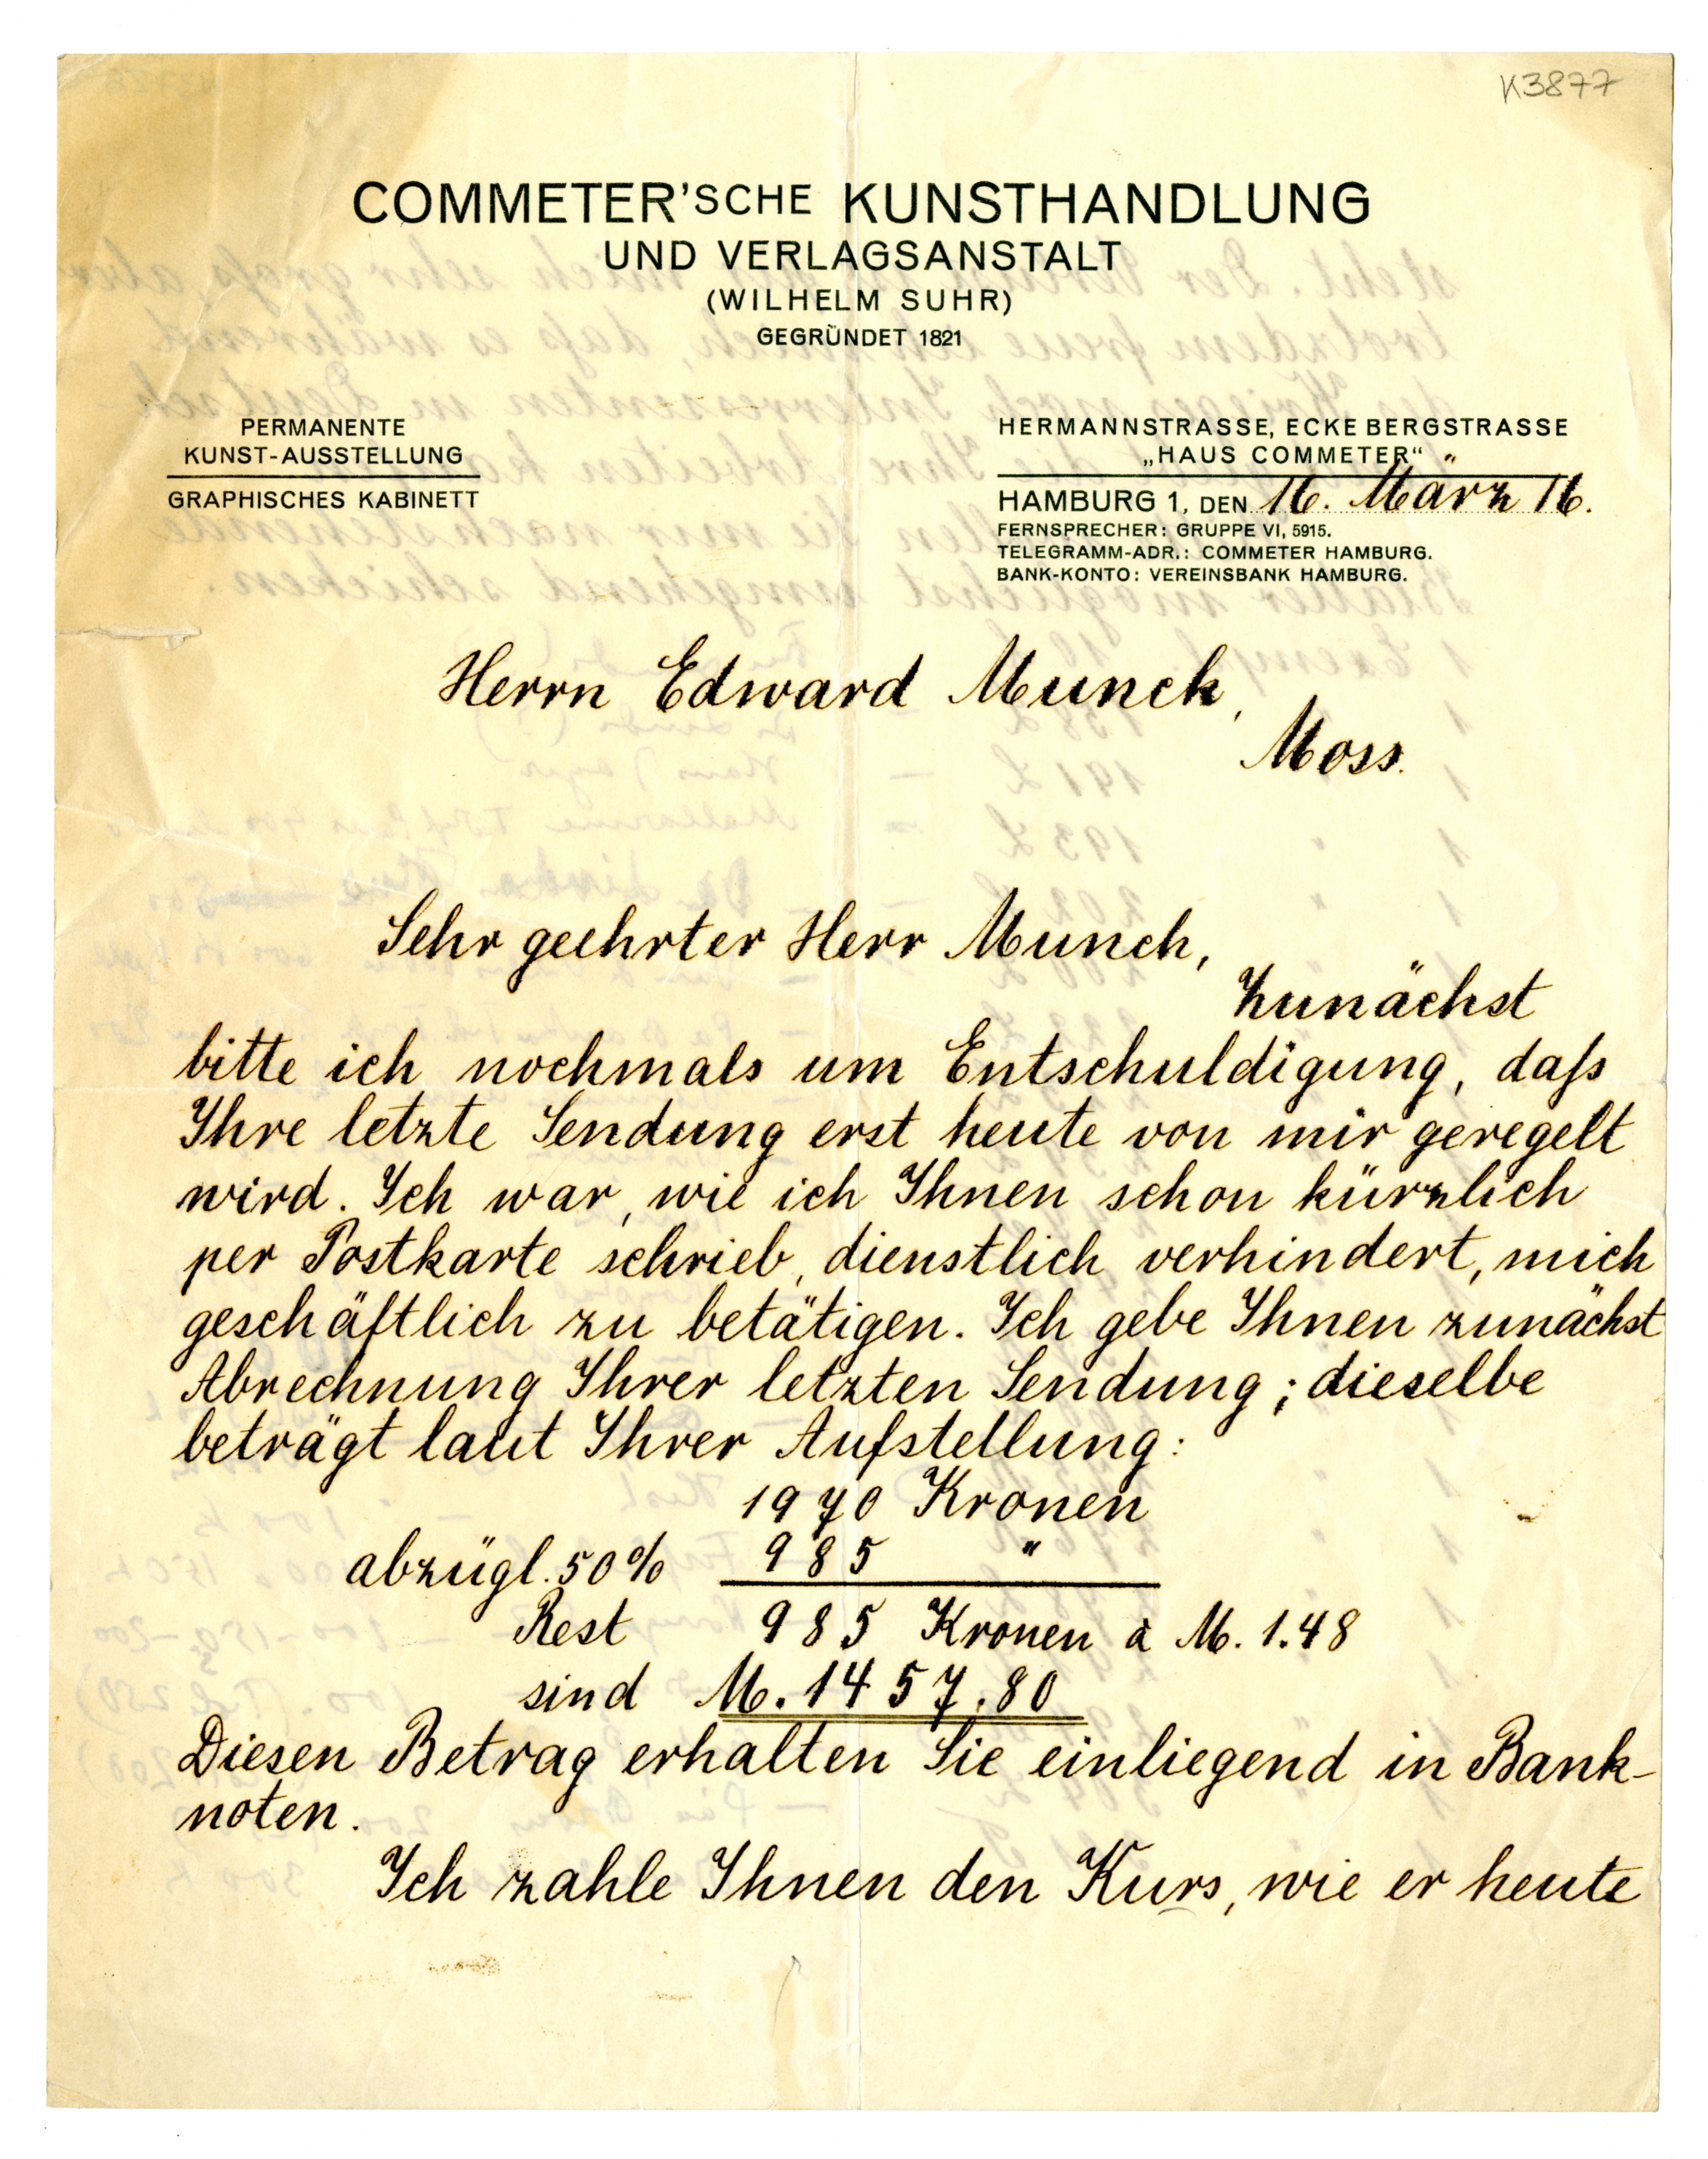 K3877
COMMETER'SCHE KUNSTHANDLUNG
UND VERLAGSANSTALT
(WILHELM SUHR)
GEGRÜNDET 1821
PERMANENTE
KUNST-AUSSTELLUNG
GRAPHISCHES KABINETT
HERMANNSTRASSE, ECKE BERGSTRASSE
„HAUS COMMETER“
HAMBURG 1, DEN 16. März 16.
FERNSPRECHER: GRUPPE VI, 5915.
TELEGRAMM-ADR.: COMMETER HAMBURG.
BANK-KONTO: VEREINSBANK HAMBURG.
Herrn Edward Munck,
Moss.
Sehr geehrter Herr Munch,
Zunächst
bitte ich nochmals um Entschuldigung, daß
Ihre letzte Sendung erst heute von mir geregelt
wird. Ich war, wie ich Ihnen schon kürzlich
per Postkarte schrieb, dienstlich verhindert, mich
geschäftlich zu betätigen. Ich gebe Ihnen zunächst
Abrechnung Ihrer letzten Sendung; dieselbe
beträgt laut Ihrer Aufstellung:
1970 Kronen
abzügl. 50% 985 "
Rest 985 Kronen à M. 1.48
sind M. 1457.80
Diesen Betrag erhalten Sie einliegend in Bank-
noten.
Ich zahle Ihnen den Kurs, wie er heute